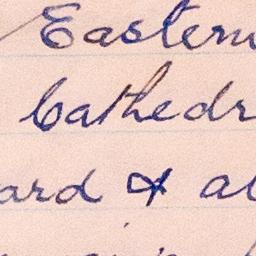 Eastern
Cathedr
ard & al